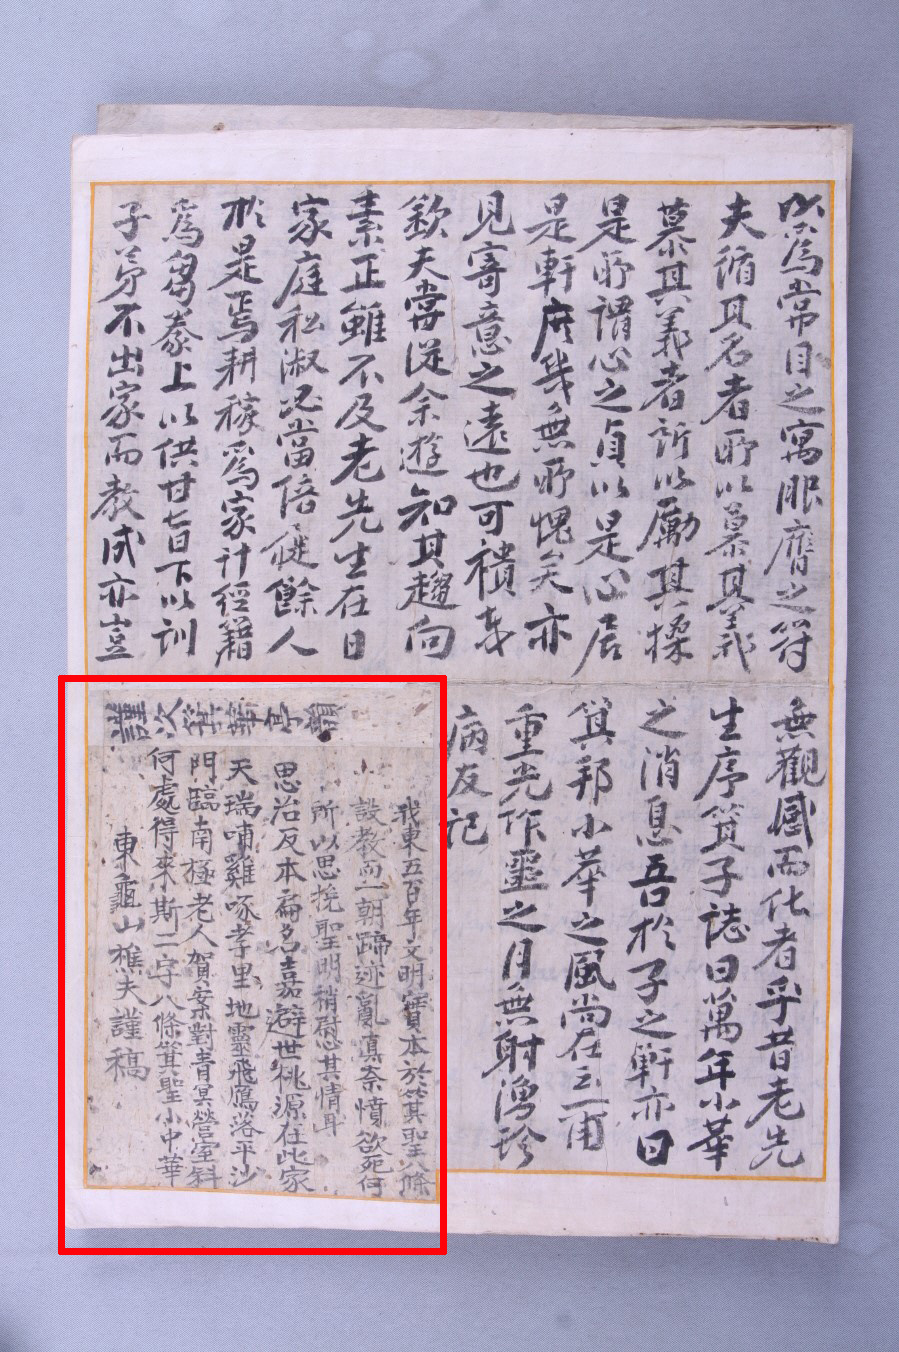 以爲常目之寓眼膺之符
夫循其名者所以慕其義
慕其義者所以勵其操
是所謂心之貞以是心居
是軒庶幾無所愧矣亦
見寄意之遠也可積夫
欽夫嘗從余遊知其趨向
素正雖不及老先生在日
家庭私淑況當陪從餘人
於是焉耕稼爲家計經籍
爲芻豢上以供甘旨下以訓
子弟不出家而敎成亦豈
無觀感而化者乎昔老先
生序箕子誌曰萬年小華
之消息吾於子之軒亦曰
箕邦小華之風尚在云甫
重光作噩之月無射澷玲
病友記
謹次華亭韻
我東五百年文明實本於箕聖八條
設敎而一朝蹄迹亂眞奈憤欲死何
所以思挽聖明稍慰其情耳
思治反本扁名嘉避世桃源在此家
天瑞哺雞啄孝里地靈飛鴈落平沙
門臨南極老人賀案對靑冥營室斜
何處得來斯二字八條箕聖小中華
東龜山樵夫謹稿